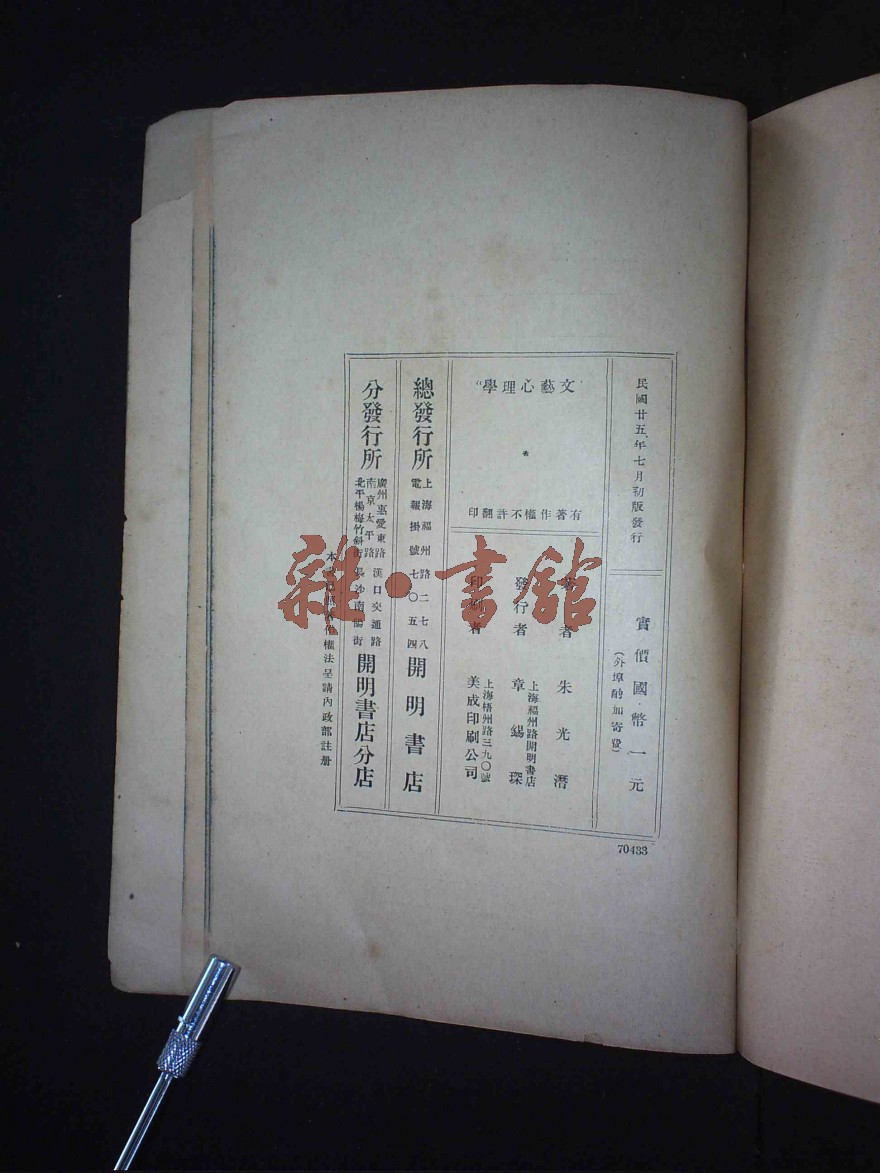 民國廿五年七月初版發行
實價國幣一元
(外埠酌加寄費)
文藝心理學
有著作權不許翻印
著者 朱光潛
發行者 章錫琛
上海福州路開明書店
印刷者 美成印刷公司
上海梧州路三九〇號
總發行所
上海福州路二七八
電報掛號七〇五四
開明書店
分發行所
廣州惠愛東路 漢口交通路
南京太平路
北平楊梅竹斜街 長沙南陽街
開明書店分店
權法呈請內政部註册
70433
雜·書館